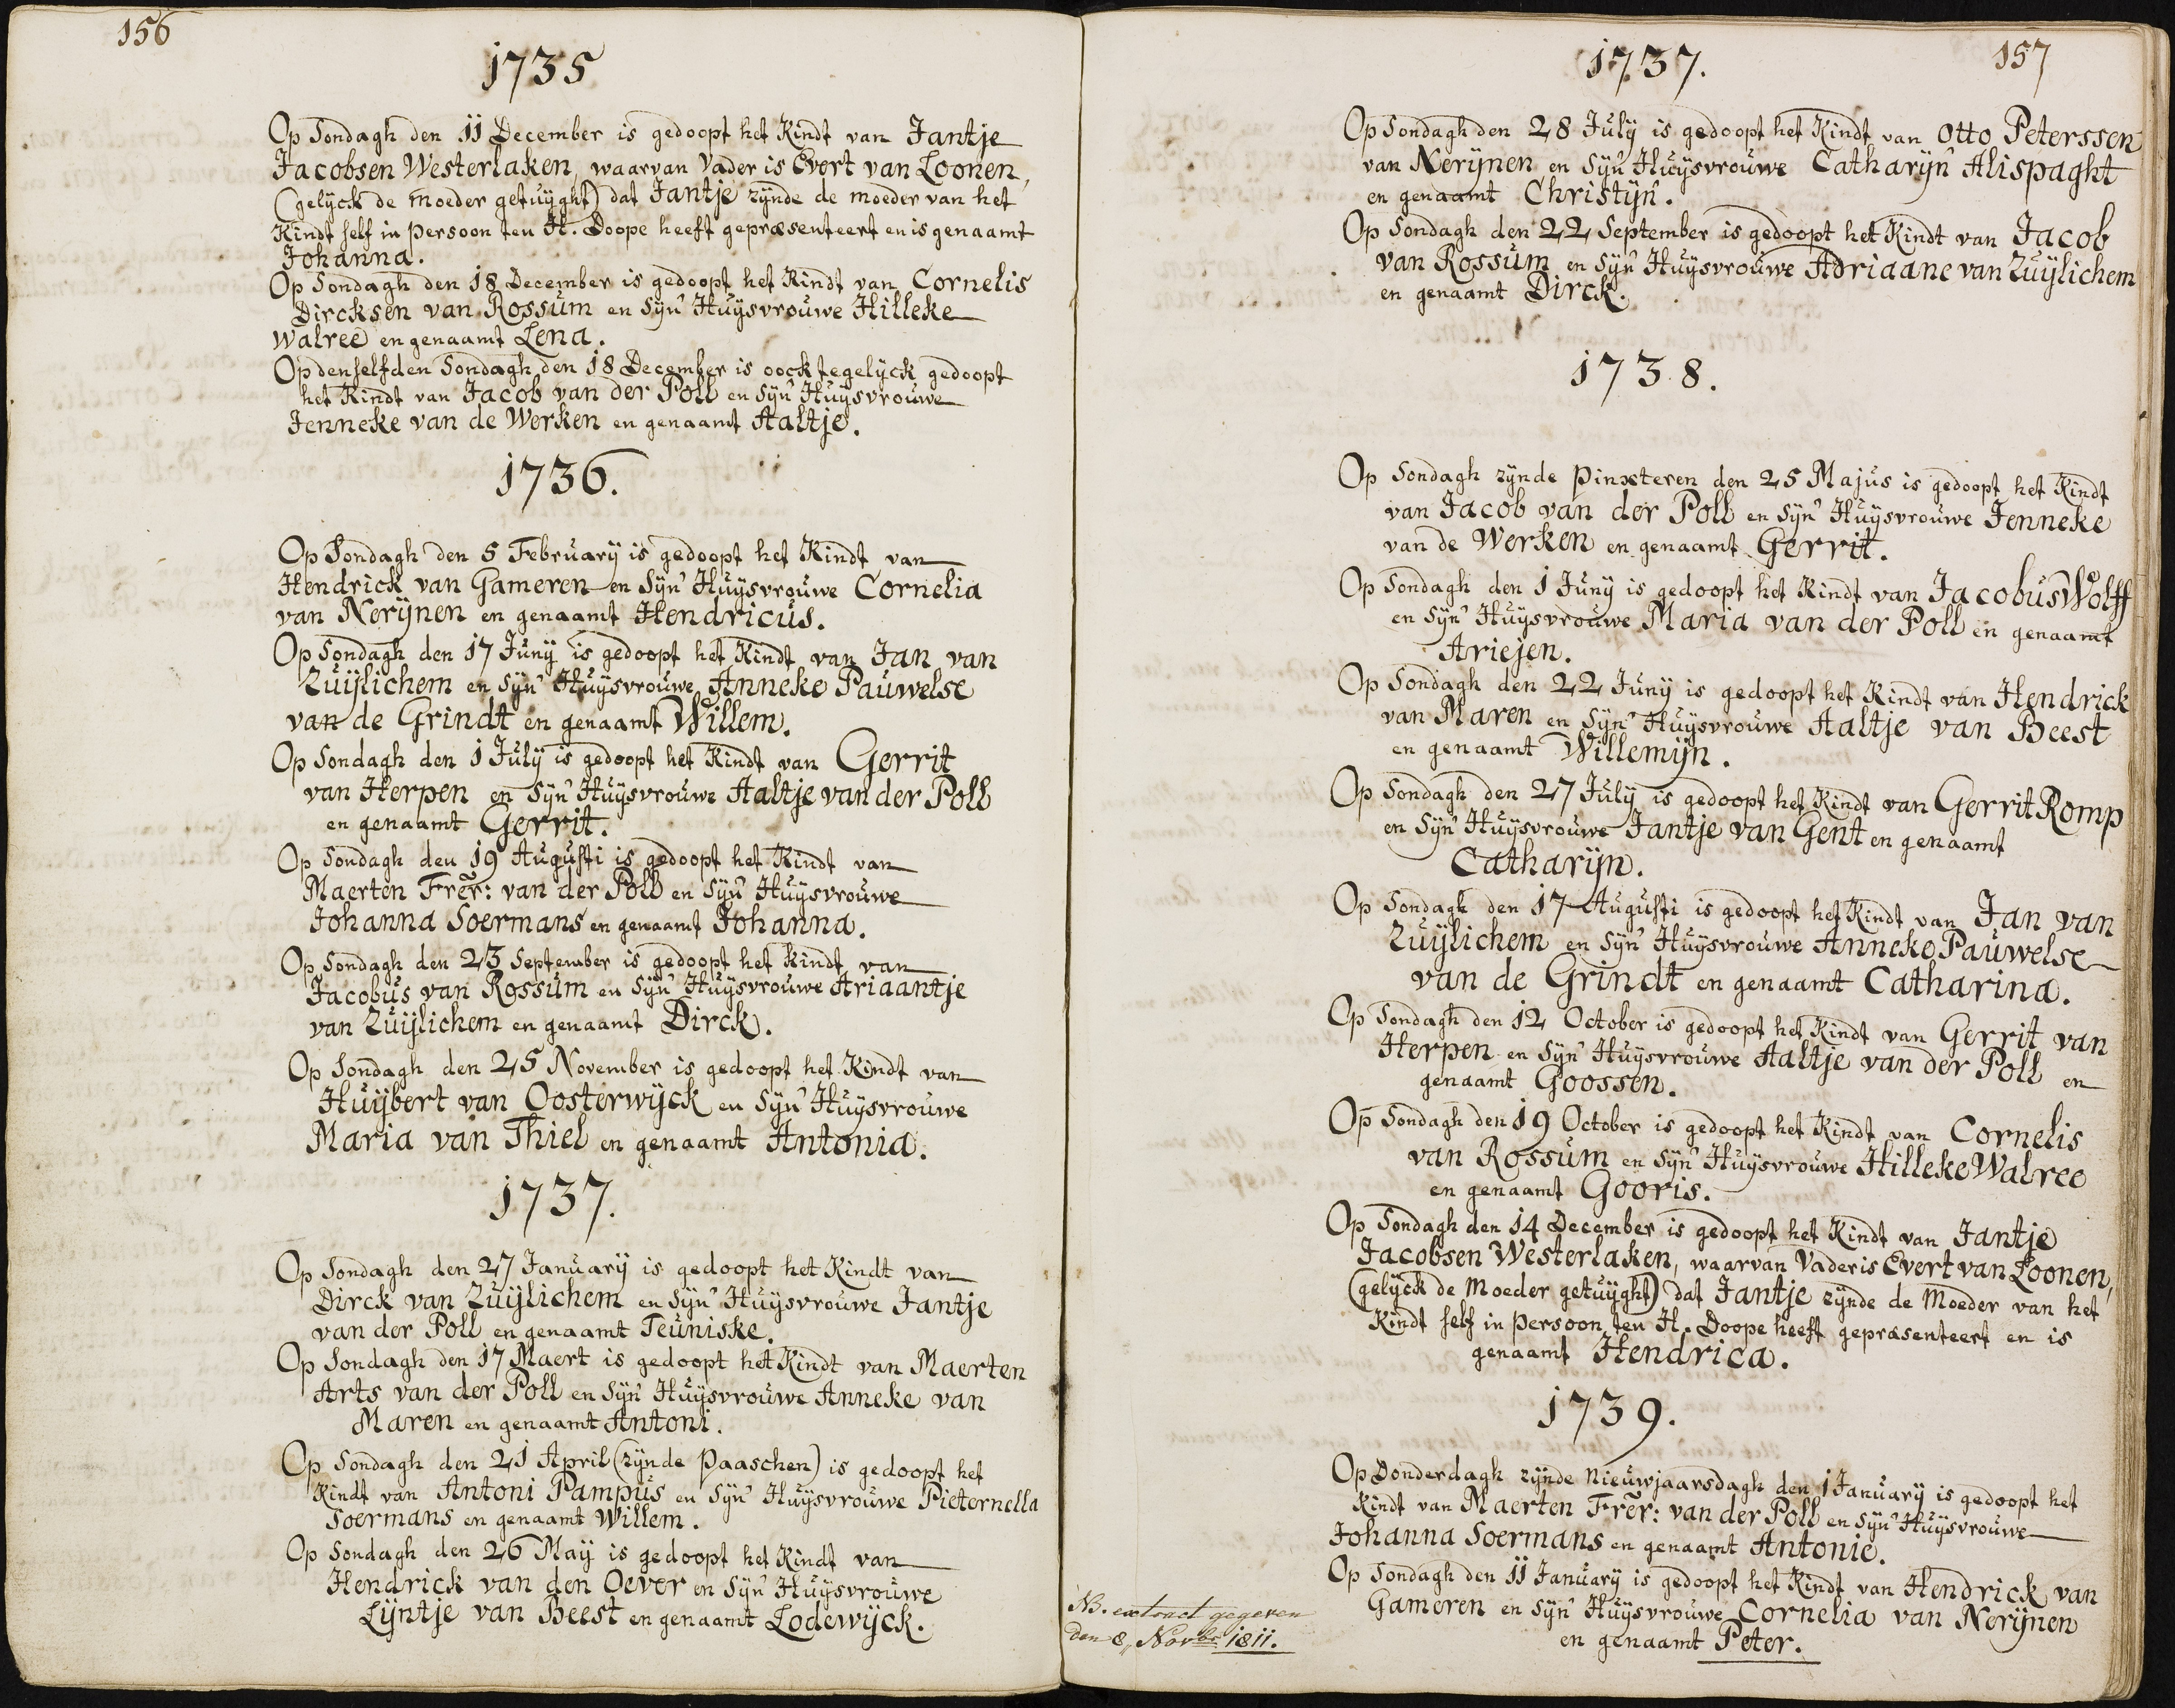 156
1735
Op Sondagh den 11 December is gedoopt het Kindt van Jantje
Jacobsen Westerlaken, waarvan Vader is Evert van Loonen,
(gelyck de moeder getuÿght) dat Jantje zÿnde de moeder van het
Kindt self in persoon ten H. Doope heeft gepræsenteert en is genaamt
Johanna.
Op Sondagh den 18 December is gedoopt het Kindt van Cornelis
Dircksen van Rossum en Sÿn Huÿsvrouwe Hilleke
Walree en genaamt Lena.
Op denselfden Sondagh den 18 December is oock tegelyck gedoopt
het Kindt van Jacob van der Poll en Sÿn Huÿsvrouwe
Jenneke van de Werken en genaamt Aaltje.
1736.
Op Sondagh den 5 Februarÿ is gedoopt het Kindt van
Hendrick van Gameren en Sÿn Huÿsvrouwe Cornelia
van Nerÿnen en genaamt Hendricus.
Op Sondagh den 17 Junÿ is gedoopt het Kindt van Jan van
Zuÿlichem en Sÿn Huÿsvrouwe Anneke Pauwelse
van de Grindt en genaamt Willem.
Op Sondagh den 1 Julÿ is gedoopt het Kindt van Gerrit
van Herpen en Sÿn Huÿsvrouwe Aaltje van der Poll
en genaamt Gerrit.
Op Sondagh den 19 Augusti is gedoopt het Kindt van
Maerten Frer: van der Poll en Sÿn Huÿsvrouwe
Johanna Soermans en genaamt Johanna.
Op Sondagh den 23 September is gedoopt het Kindt van
Jacobus van Rossum en Sÿn Huÿsvrouwe Ariaantje
van Zuÿlichem en genaamt Dirck.
Op Sondagh den 25 November is gedoopt het Kindt van
Huÿbert van Oosterwÿck en Sÿn Huÿsvrouwe
Maria van Thiel en genaamt Antonia.
1737.
Op Sondagh den 27 Januarÿ is gedoopt het Kindt van
Dirck van Zuÿlichem en Sÿn Huÿsvrouwe Jantje
van der Poll en genaamt Teuniske.
Op Sondagh den 17 Maert is gedoopt het Kindt van Maerten
Arts van der Poll en Sÿn Huÿsvrouwe Anneke van
Maren en genaamt Antoni.
Op Sondagh den 21 April (zÿnde Paaschen) is gedoopt het
Kindt van Antoni Pampus en Sÿn Huÿsvrouwe Pieternella
Soermans en genaamt Willem.
Op Sondagh den 26 Maÿ is gedoopt het Kindt van
Hendrick van den Oever en Sÿn Huÿsvrouwe
Lÿntje van Beest en genaamt Lodewÿck.
1737.
157
Op Sondagh den 28 Julÿ is gedoopt het Kindt van Otto Peterssen
van Nerÿnen en Sÿn Huÿsvrouwe Catharÿn Alispaght
en genaamt Christÿn.
Op Sondagh den 22 September is gedoopt het Kindt van Jacob
van Rossum en Sÿn Huÿsvrouwe Adriaane van Zuÿlichem
en genaamt Dirck.
1738.
Op Sondagh zÿnde Pinxteren den 25 Majus is gedoopt het Kindt
van Jacob van der Poll en Sÿn Huÿsvrouwe Jenneke
van de Werken en genaamt Gerrit.
Op Sondagh den 1 Junÿ is gedoopt het Kindt van Jacobus Wolff
en Sÿn Huÿsvrouwe Maria van der Poll en genaamt
Ariejen.
Op Sondagh den 22 Junÿ is gedoopt het Kindt van Hendrick
van Maren en Sÿn Huÿsvrouwe Aaltje van Beest
en genaamt Willemÿn.
Op Sondagh den 27 Julÿ is gedoopt het Kindt van Gerrit Romp
en Sÿn Huÿsvrouwe Jantje van Gent en genaamt
Catharÿn.
Op Sondagh den 17 Augusti is gedoopt het Kindt van Jan van
Zuÿlichem en Sÿn Huÿsvrouwe Anneke Pauwelse
van de Grindt en genaamt Catharina.
Op Sondagh den 12 October is gedoopt het Kindt van Gerrit van
Herpen en Sÿn Huÿsvrouwe Aaltje van der Poll en
genaamt Goossen.
Op Sondagh den 19 October is gedoopt het Kindt van Cornelis
van Rossum en Sÿn Huÿsvrouwe Hilleke Walree
en genaamt Gooris.
Op Sondagh den 14 December is gedoopt het Kindt van Jantje
Jacobsen Westerlaken, waarvan Vader is Evert van Loonen,
(gelÿck de Moeder getuÿght) dat Jantje zÿnde de Moeder van het
Kindt self in persoon ten H. Doope heeft gepræsenteert en is
genaamt Hendrica.
1739.
Op Donderdagh zÿnde Nieuwjaarsdagh den 1 Januarÿ is gedoopt het
Kindt van Maerten Frer: van der Poll en Sÿn Huÿsvrouwe
Johanna Soermans en genaamt Antonie.
Op Sondagh den 11 Januarÿ is gedoopt het Kindt van Hendrick van
Gameren en Sÿn Huÿsvrouwe Cornelia van Nerÿnen
en genaamt Peter.
NB. extract gegeven
den 8,, Novbr 1811.